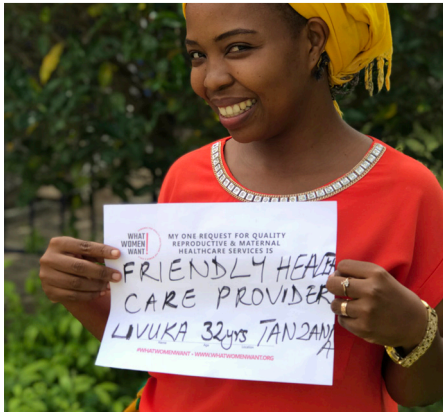 WHAT
WOMEN
WANT
MY ONE REQUEST FOR QUALITY
REPRODUCTIVE & MATERNAL
HEALTHCARE SERVICES IS
FRIENDLY HEALTH
CARE PROVIDER
LIVUKA 32yrs TANZANIA
#WHATWOMENWANT • WWW.WHATWOMENWANT.ORG